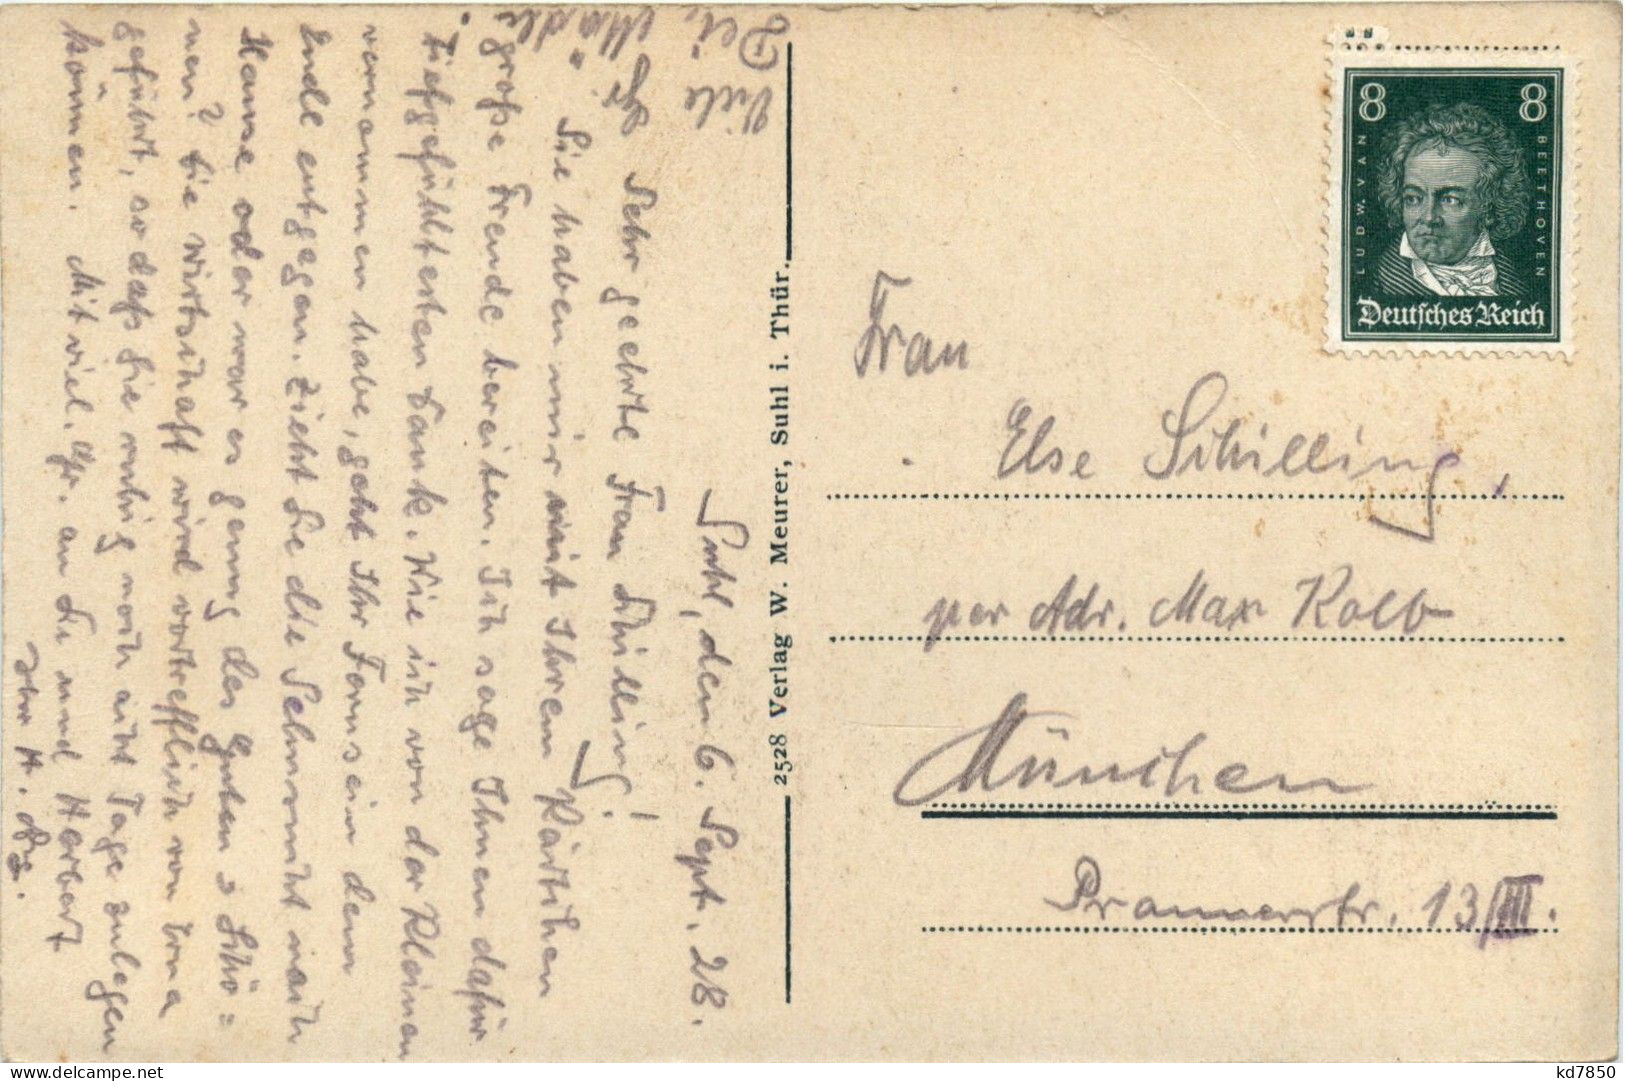 Suhl, den 6. Sept. 28.
Sehr geehrte Frau Schilling!
Sie haben mir mit Ihrem Kärtchen
große Freude bereitet. Ich sage Ihnen dafür
tiefgefühltesten Dank. Wie ich von der Kleinen
vernommen habe, geht Ihr Fernsein dem
Ende entgegen. Zieht Sie die Sehnsucht nach
Hause oder war es genug des Guten u Schö=
nen? Die Wirtschaft wird vortrefflich von Erna
geführt, sodaß Sie ruhig noch acht Tage zulegen
können. Mit viel. Gr. an Sie und Herbert
Ihr H.
Viele
Dei
2528 Verlag W. Meurer, Suhl i. Thür.
8 8
LUDW. VAN BEETHOVEN
Deutsches Reich
Frau
Else Schilling,
per Adr. Max Kolb
München
Prannerstr. 13/III.
kd7850